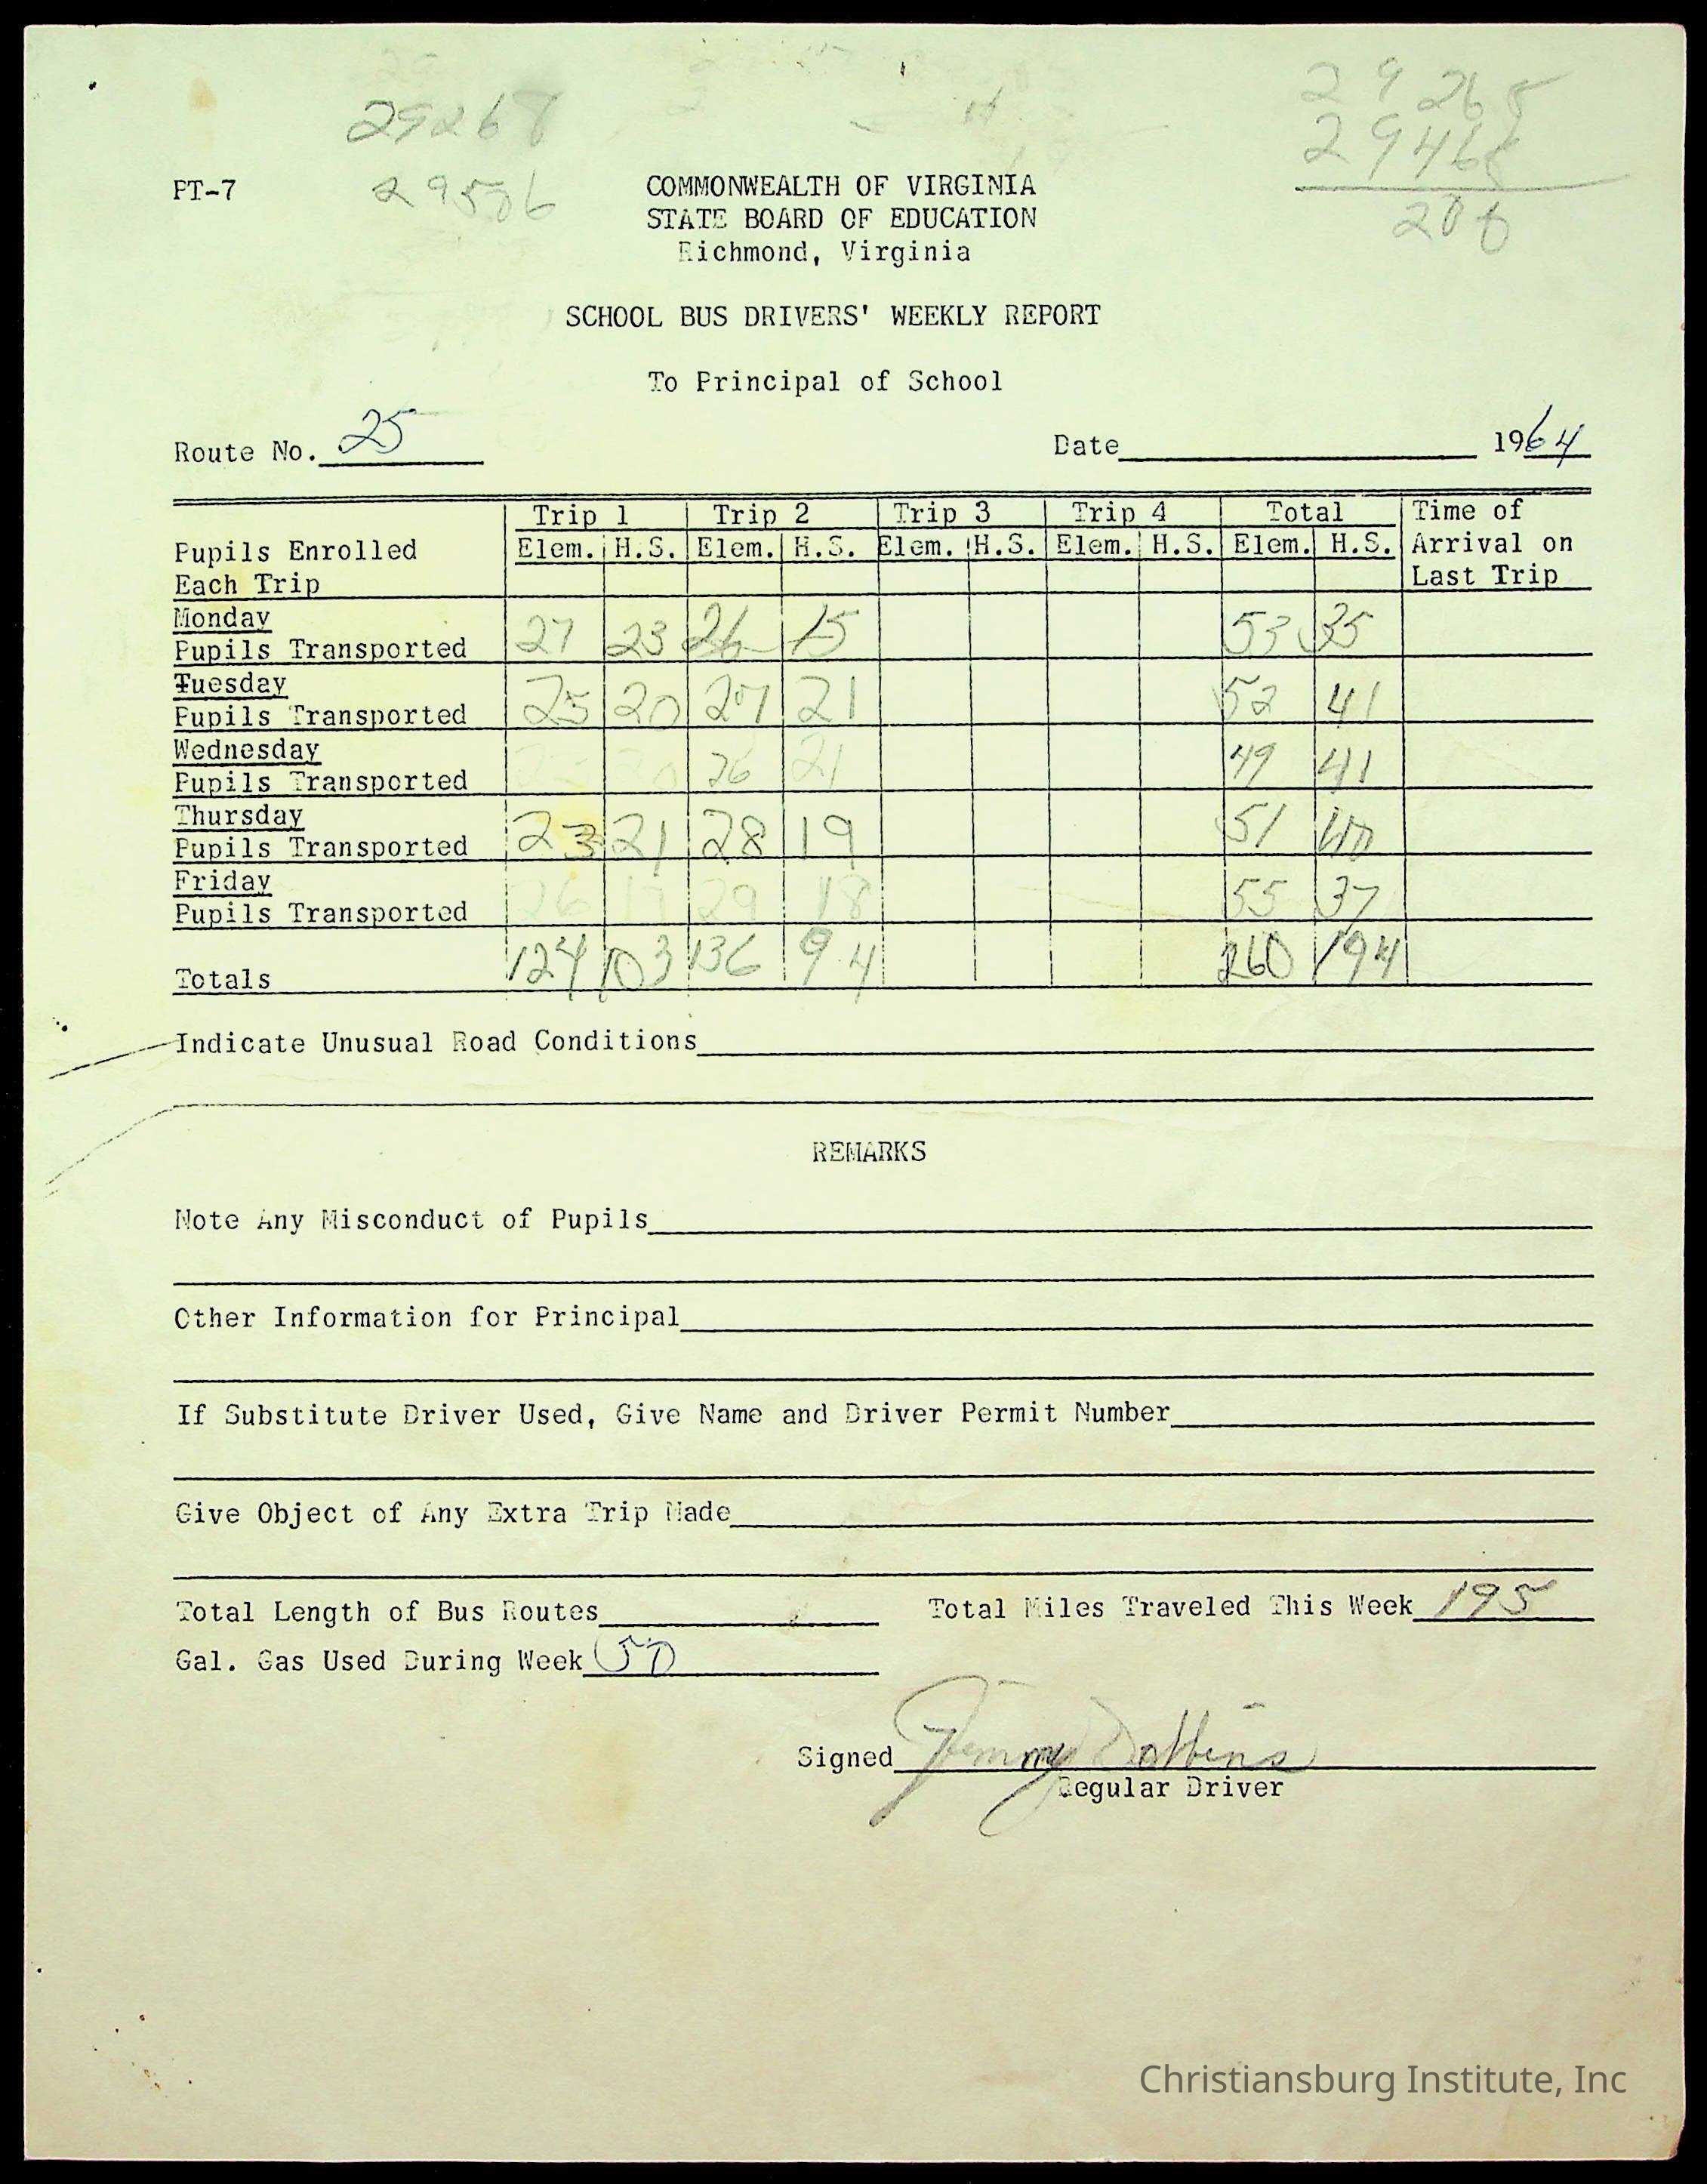 29268
29506
29268
29468
200
PT-7
COMMONWEALTH OF VIRGINIA
STATE BOARD OF EDUCATION
Richmond, Virginia
SCHOOL BUS DRIVERS' WEEKLY REPORT
To Principal of School
Route No. 25 Date 1964
Trip 1 Trip 2 Trip 3 Trip 4 Total Time of
Pupils Enrolled Elem. H.S. Elem. H.S. Elem. H.S. Elem. H.S. Elem. H.S. Arrival on
Each Trip Last Trip
Monday
Pupils Transported 27 23 26 15 53 35
Tuesday
Pupils Transported 25 20 27 21 52 41
Wednesday
Pupils Transported 26 21 49 41
Thursday
Pupils Transported 23 21 28 19 51 40
Friday
Pupils Transported 26 29 18 55 37
Totals 124 103 136 94 260 194
Indicate Unusual Road Conditions
REMARKS
Note Any Misconduct of Pupils
Other Information for Principal
If Substitute Driver Used, Give Name and Driver Permit Number
Give Object of Any Extra Trip Made
Total Length of Bus Routes Total Miles Traveled This Week 195
Gal. Gas Used During Week 50
Signed Jimmy Dobbins
Regular Driver
Christiansburg Institute, Inc